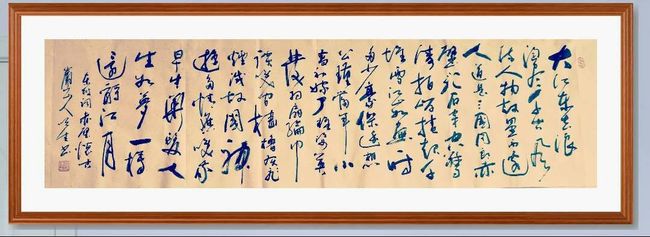 大江东去浪
淘尽千古风
流人物故垒西边
人道是三国周郎赤
壁乱石穿空惊
涛拍岸卷起千
堆雪江山如画一时
多少豪杰遥想
公瑾当年小
乔初嫁了雄姿英
发羽扇纶巾
谈笑间樯橹灰飞
烟灭故国神
游多情应笑我
早生华发人
生如梦一樽
还酹江月
东坡词赤壁怀古
山人书